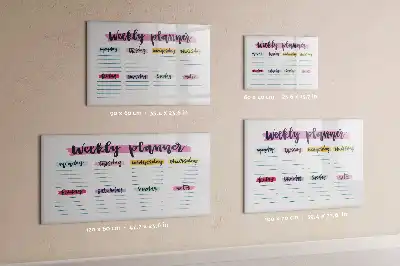 weekly planner
monday tuesday wednesday thursday
friday saturday sunday notes
90 x 60 cm - 35.4 x 23.6 in
weekly planner
monday tuesday wednesday thursday
friday saturday sunday notes
60 x 40 cm - 23.6 x 15.7 in
weekly planner
monday tuesday wednesday thursday
friday saturday sunday notes
120 x 60 cm - 47.2 x 23.6 in
weekly planner
monday tuesday wednesday thursday
friday saturday sunday notes